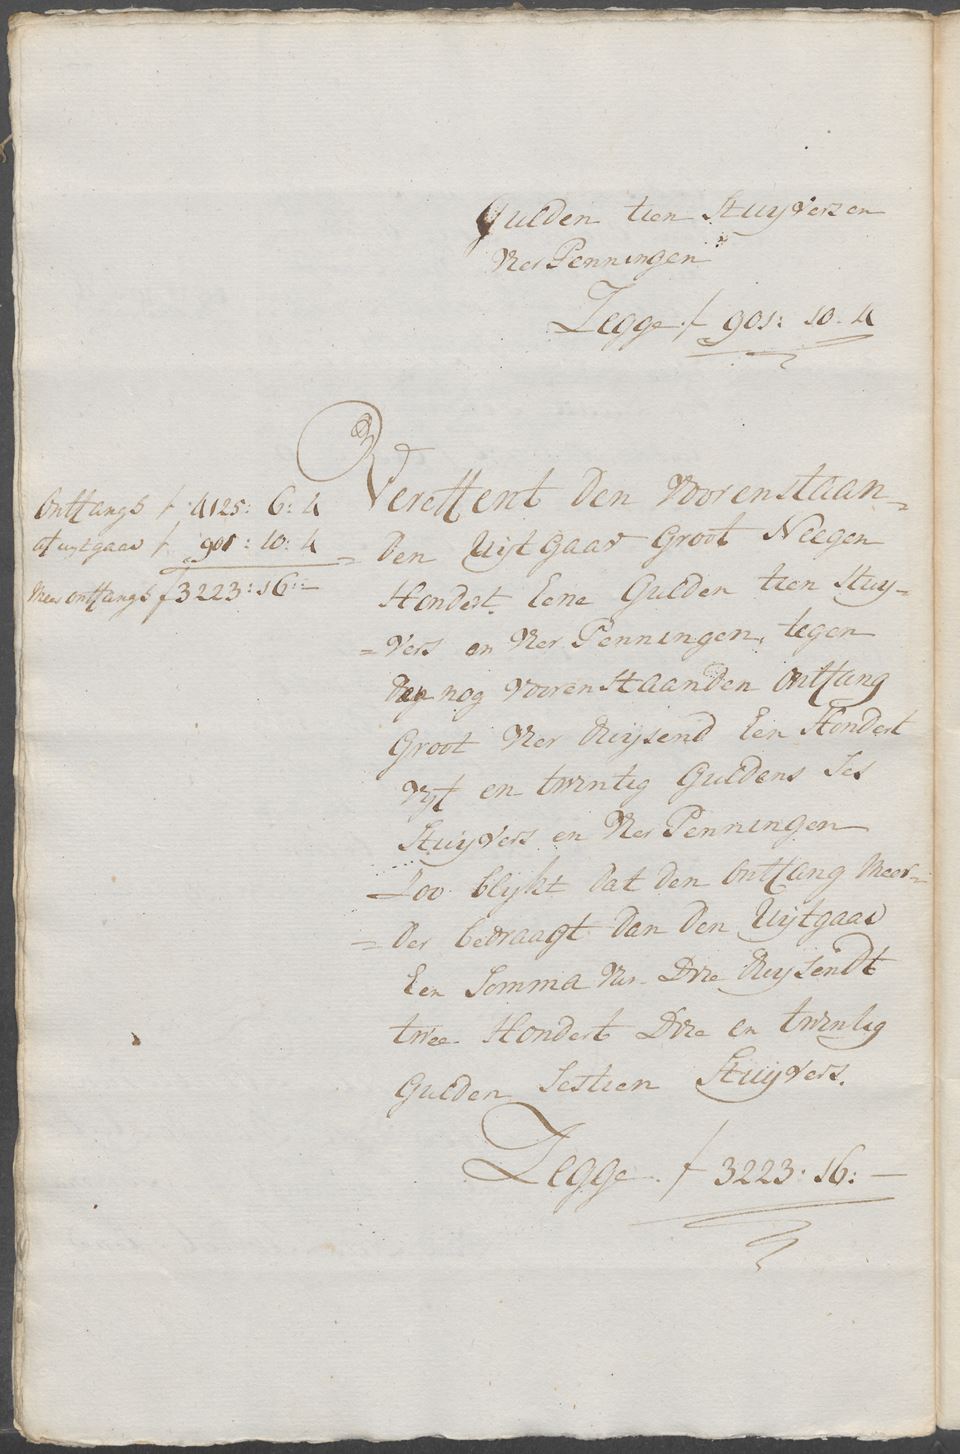 Gulden tien Stuyvers en
Vier Penningen
Zegge f 901: 10. 4
Ontfangs f 4125: 6: 4
af uytgaav f 901: 10: 4
Meer ontfangs f 3223: 16: —
Vereffent den voorenstaan=
den Uijtgaav Groot Neegen
Hondert Eene Gulden tien Stuy=
=vers en Vier Penningen, tegen
den nog voorenstaanden ontfang
Groot Vier Duijsend Een Hondert
Vijf en twintig Guldens Ses
Stuyvers en Vier Penningen
Zoo blijkt dat den ontfang Meer=
=der bedraagt dan den Uijtgaav
Een Somma van Drie Duysendt
twee Hondert Drie en twintig
Gulden Sestien Stuyvers.
Zegge f 3223: 16: —